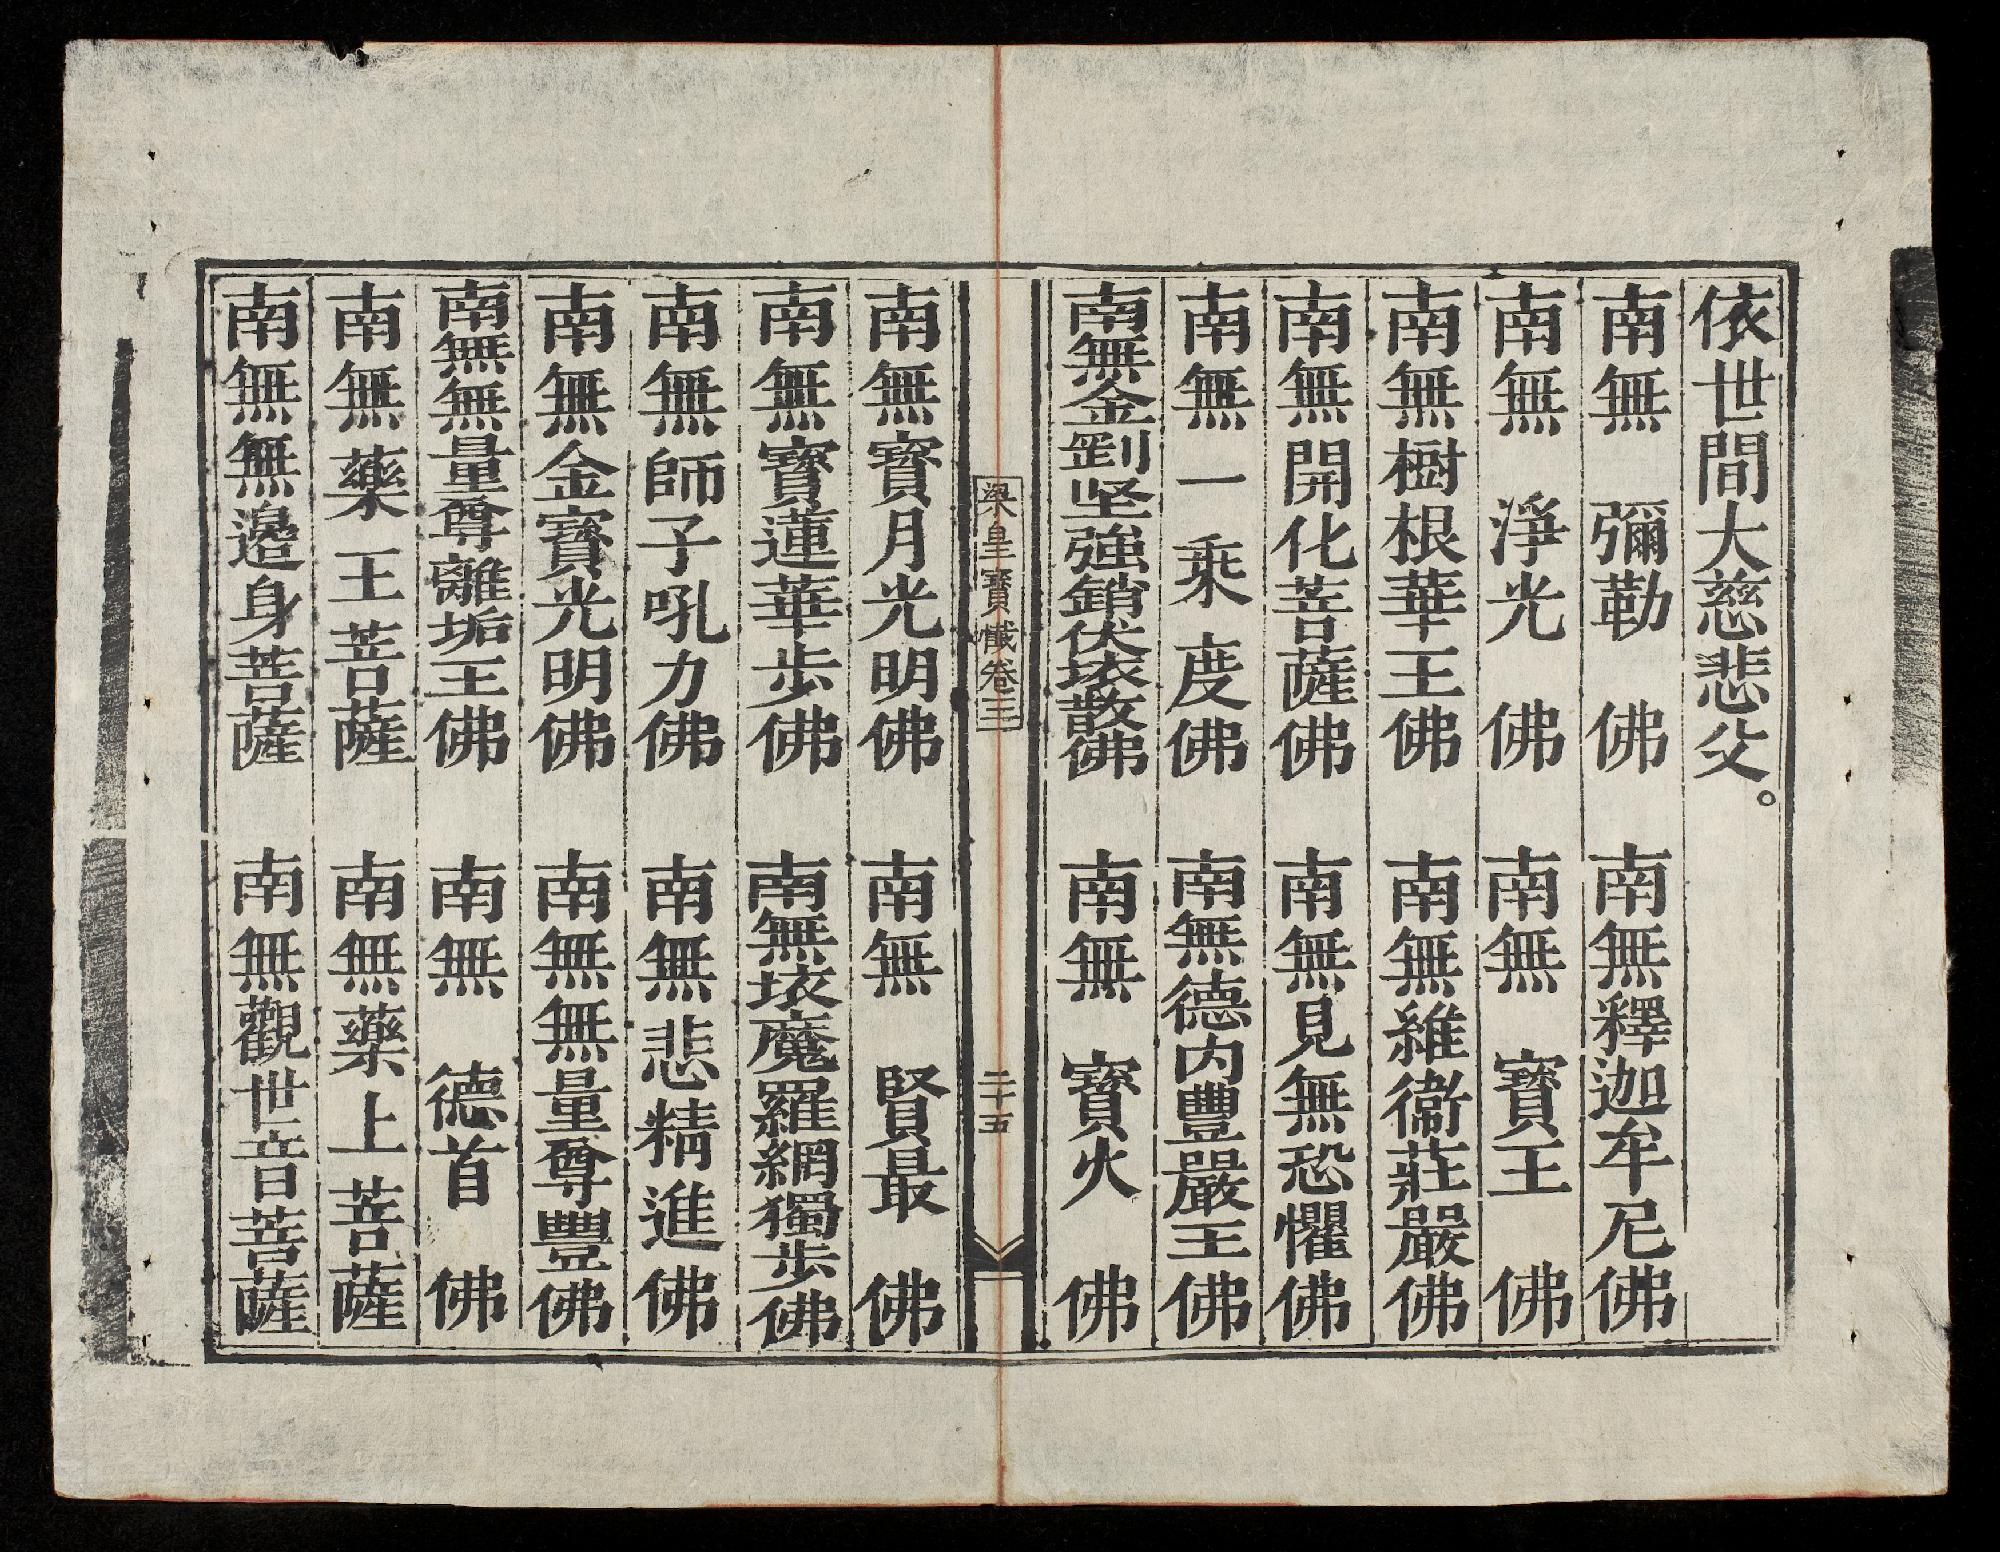 依世間大慈悲父。
南無彌勒佛　南無釋迦牟尼佛
南無淨光佛　南無寶王佛
南無樹根華王佛　南無維衛莊嚴佛
南無開化菩薩佛　南無見無恐懼佛
南無一乘度佛　南無德內豐嚴王佛
南無金剛坚強銷伏壊散佛　南無寶火佛
梁皇寶懺卷三　二十五
南無寶月光明佛　南無賢最佛
南無寶蓮華步佛　南無壊魔羅網獨步佛
南無師子吼力佛　南無悲精進佛
南無金寶光明佛　南無無量尊豐佛
南無無量尊離垢王佛　南無德首佛
南無藥王菩薩　南無藥上菩薩
南無無邊身菩薩　南無觀世音菩薩